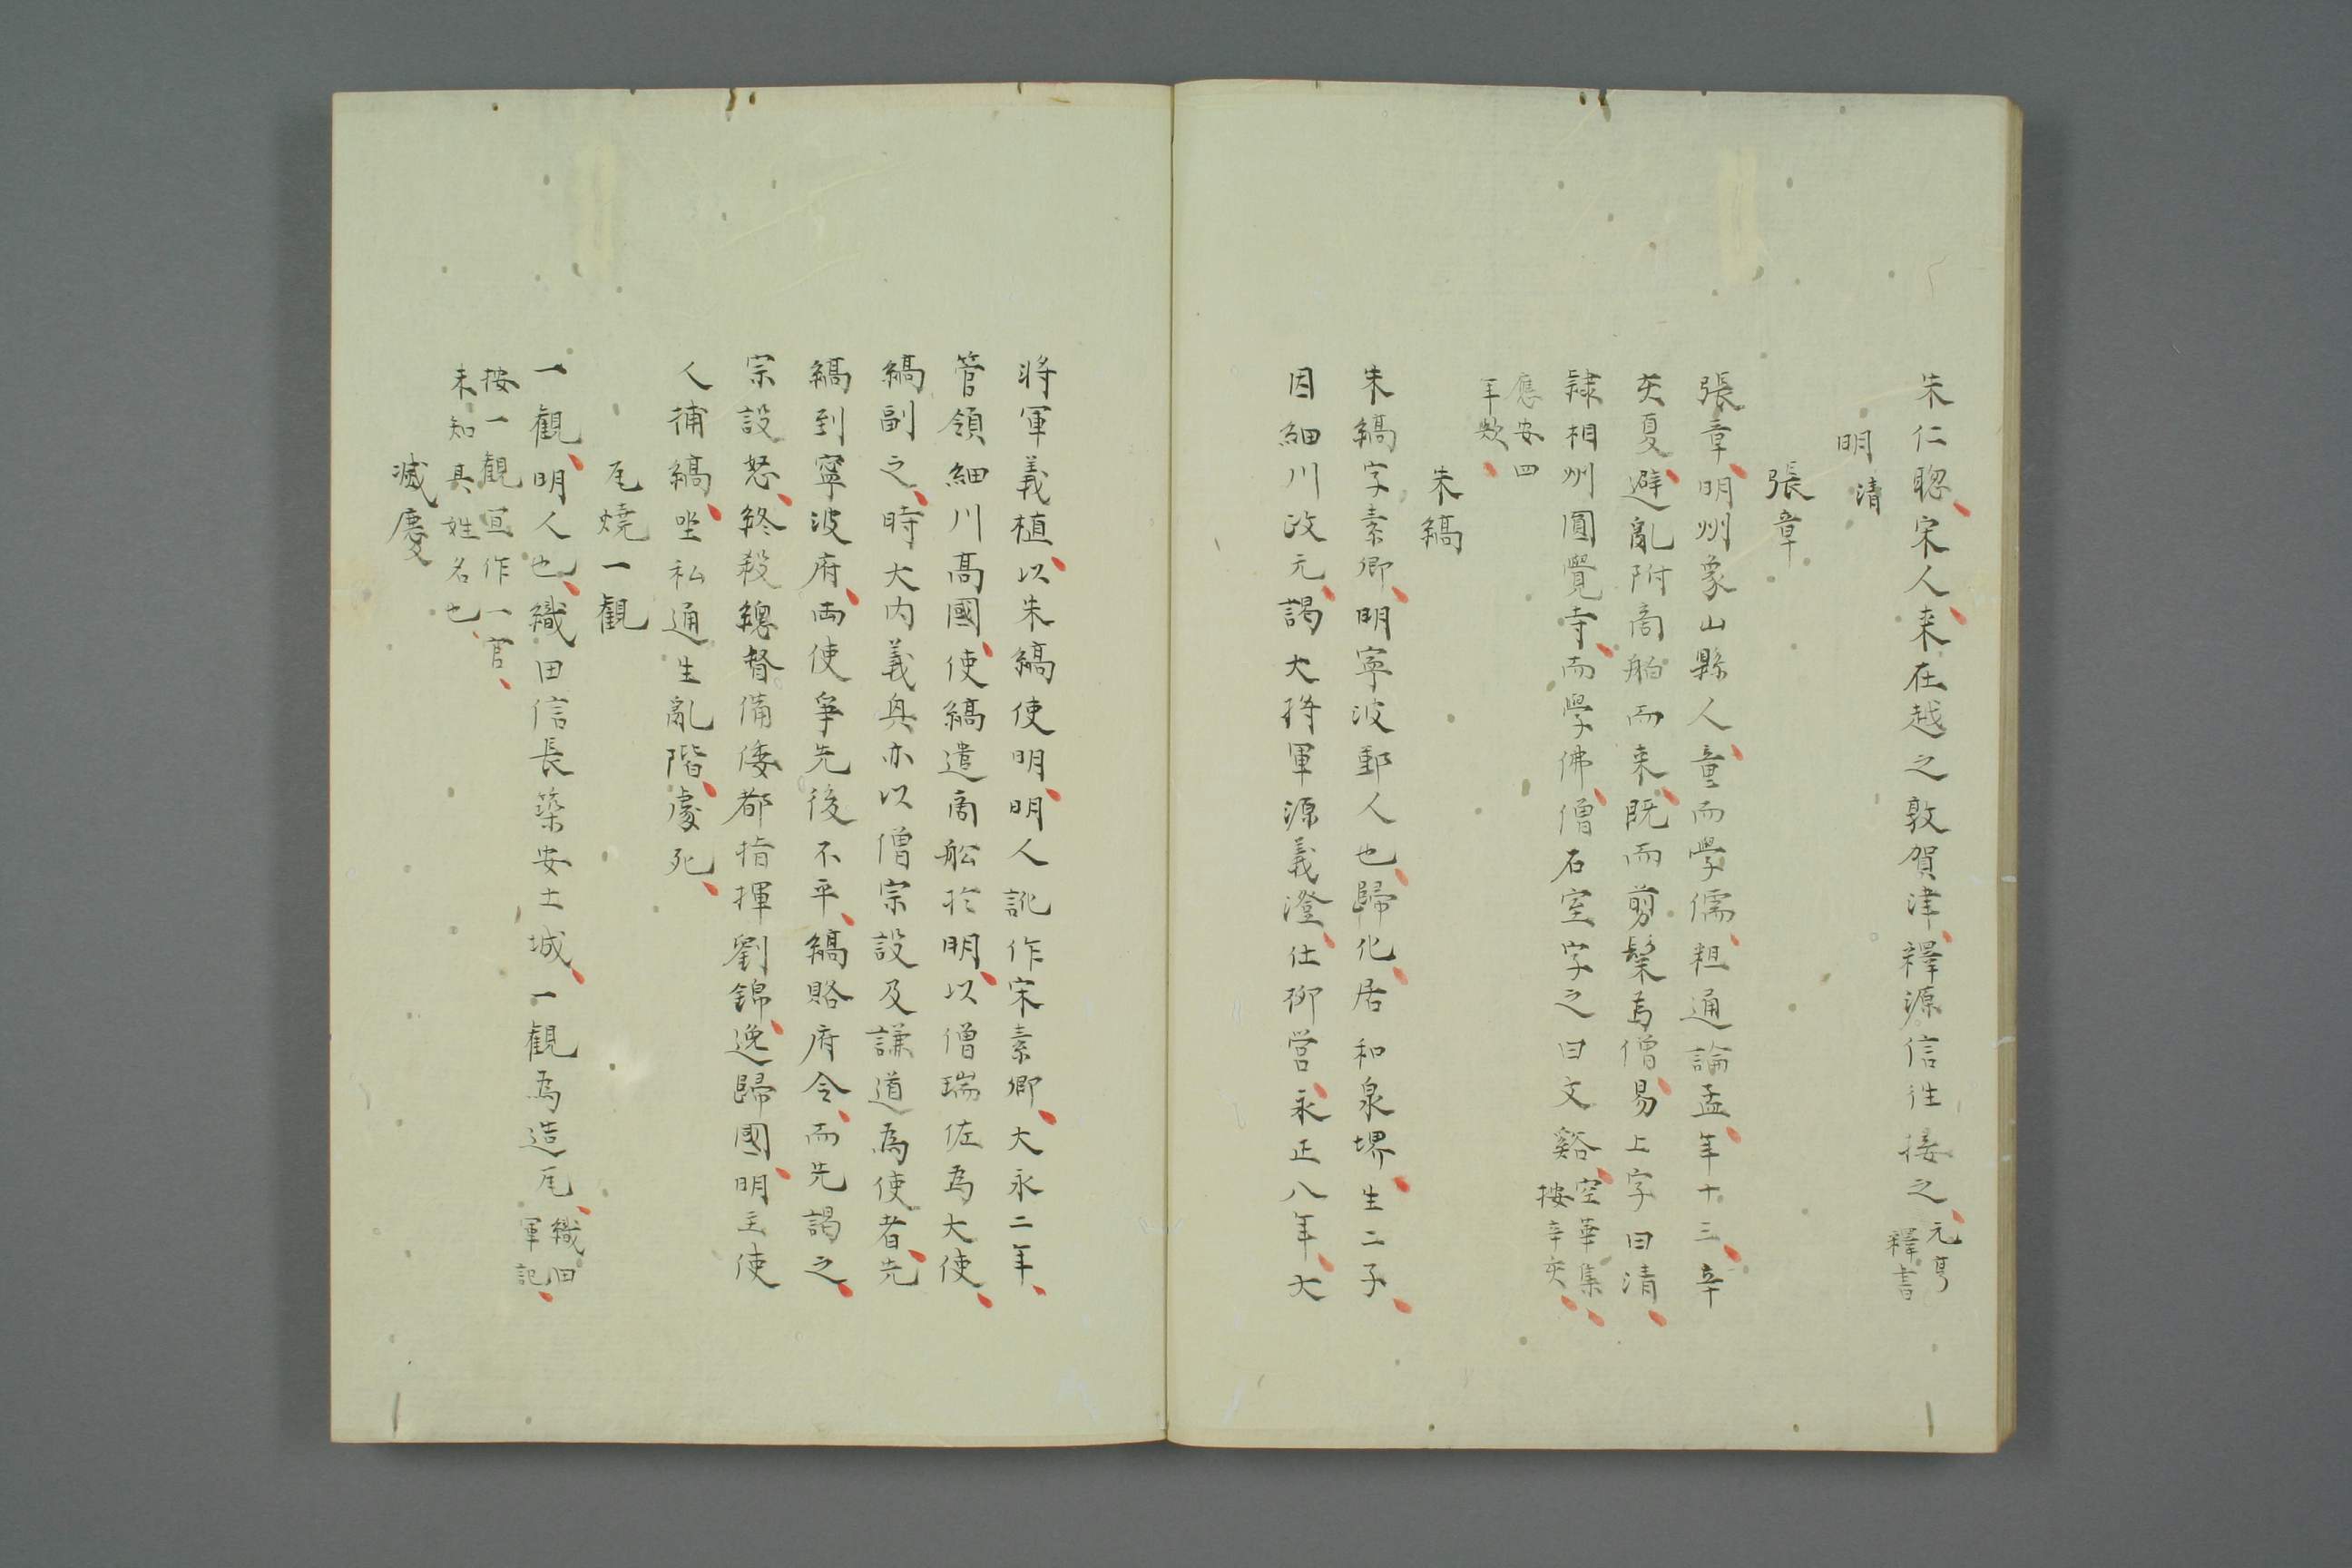 朱仁聡宋人来在越之敦賀津釋源信往接之元亨
釋書
明清
張章
張章明州象山縣人童而學儒粗通論孟年十三辛
亥夏避亂附商舶而来既而剪髮為僧易上字曰清
隷相州圓覺寺而學佛僧石室字之曰文谿空華集
按辛亥
應安四
年歟
朱縞
朱縞字素卿明寧波鄞人也歸化居和泉堺生二子
因細川政元謁大將軍源義澄仕柳営永正八年大
将軍義植以朱縞使明明人訛作宋素卿大永二年
管領細川髙國使縞遣商舩於明以僧瑞佐為大使
縞副之時大内義興亦以僧宗設及謙道為使者先
縞到寧波府両使爭先後不平縞賂府令而先謁之
宗設怒終殺總督備倭都指揮劉錦逸歸國明主使
人捕縞坐私通生亂階處死
瓦燒一観
一観明人也織田信長築安土城一観為造瓦織田
軍記
按一観亘作一官
未知具姓名也
滅慶